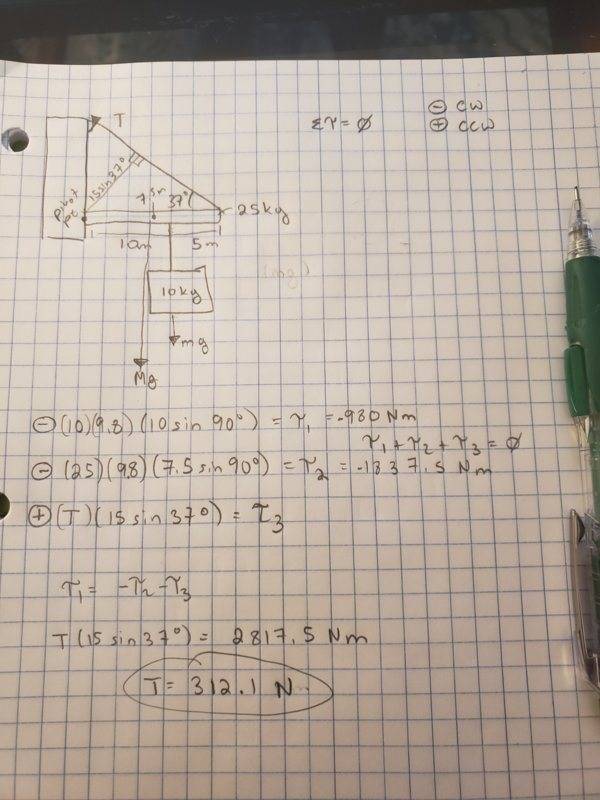 ⊖ CW
T
Στ = ∅
⊕ CCW
15 sin 37°
7.5m
37°
Pivot pt
25kg
10m
5m
(mg)
10kg
mg
Mg
⊖ (10)(9.8)(10 sin 90°) = τ₁ = -980 Nm
τ₁ + τ₂ + τ₃ = ∅
⊖ (25)(9.8)(7.5 sin 90°) = τ₂ = -1837.5 Nm
⊕ (T)(15 sin 37°) = τ₃
τ₁ = -τ₂ - τ₃
T(15 sin 37°) = 2817.5 Nm
T = 312.1 N